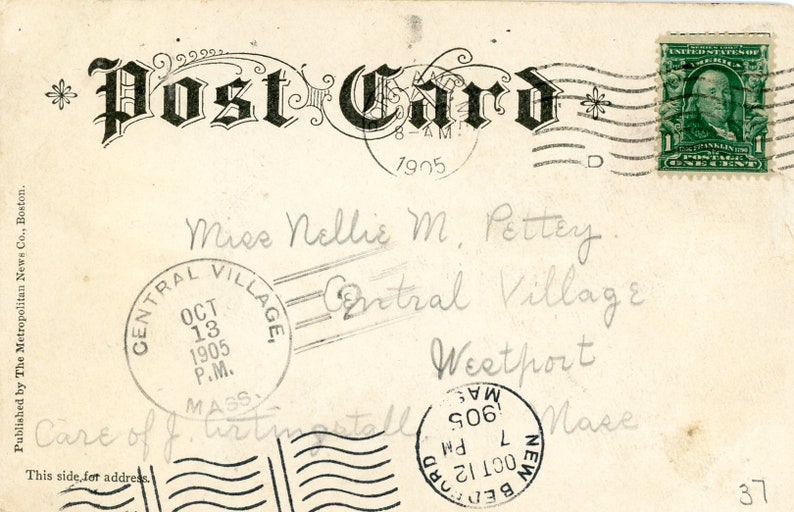 Post Card
8-AM.
1905
D
SERIES 1902
UNITED STATES OF
AMERICA
1 FRANKLIN 1
POSTAGE
ONE CENT
Published by The Metropolitan News Co., Boston.
Miss Nellie M. Pettey.
Central Village
Westport
Mass
Care of J.
CENTRAL VILLAGE,
OCT
13
1905
P.M.
MASS.
NEW BEDFORD
OCT 12
7 PM
1905
MASS
This side for address.
37